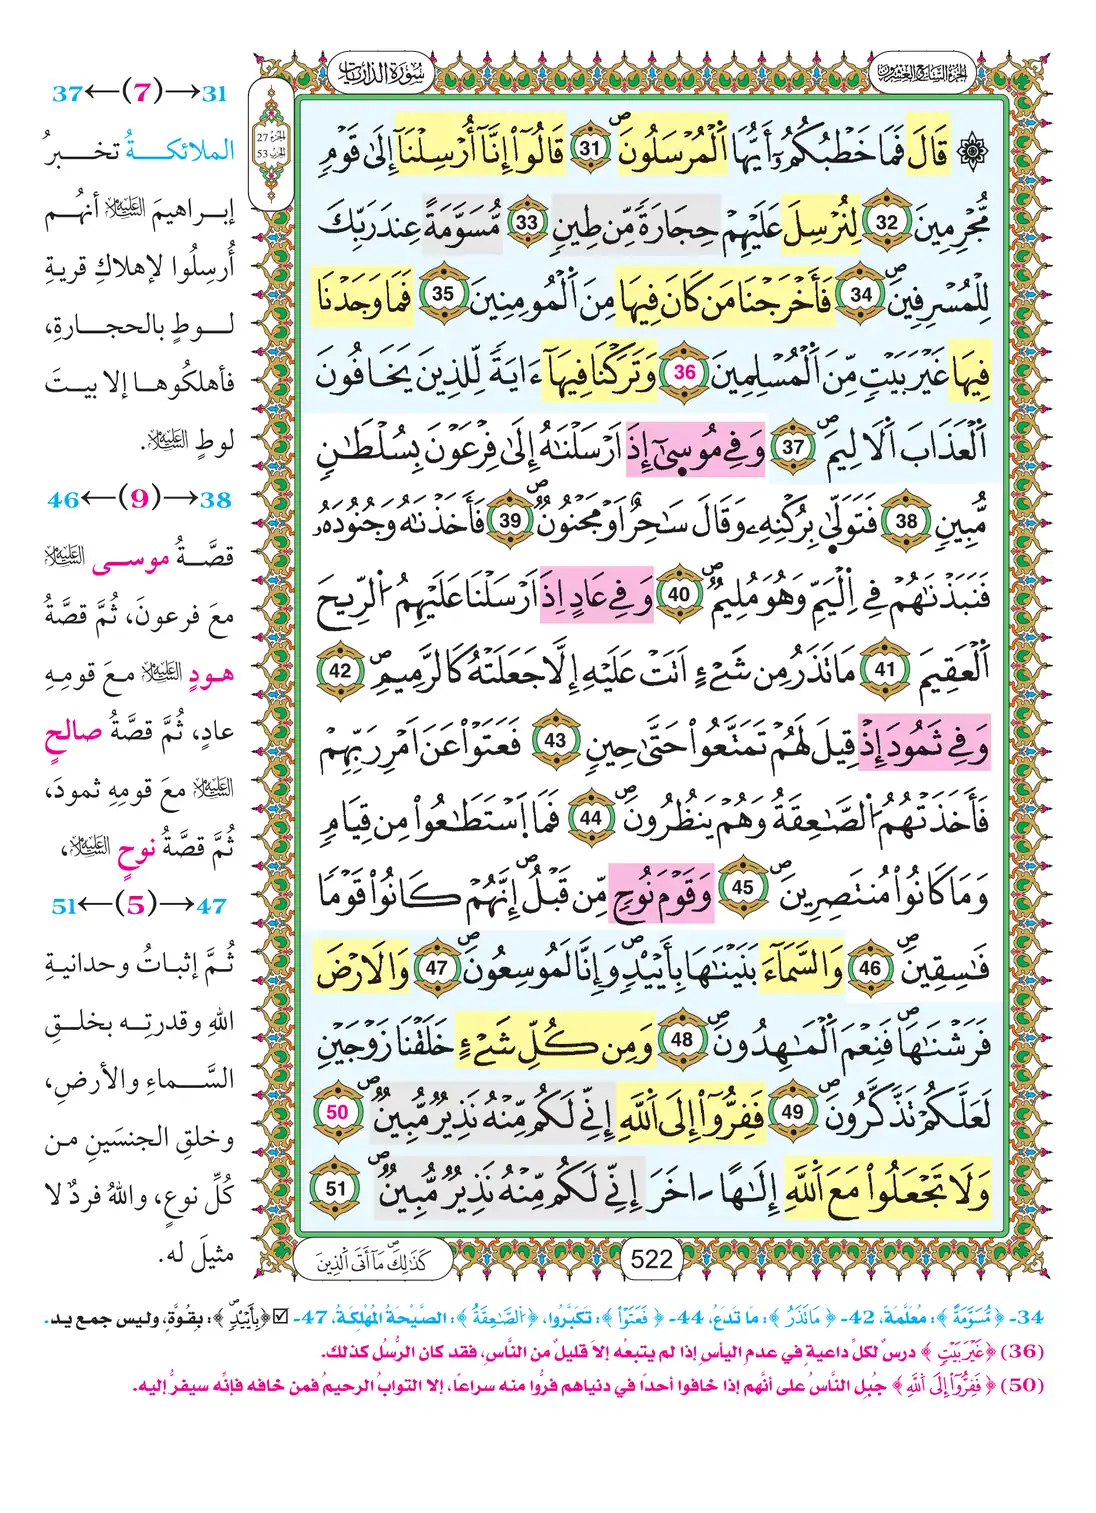 الجزء السابع والعشرون
سورة الذاريات
الجزء 27
الحزب 53
۞ قَالَ فَمَا خَطْبُكُمُۥٓ أَيُّهَا اَ۬لْمُرْسَلُونَۖ 31 قَالُوٓاْ إِنَّآ أُرْسِلْنَآ إِلَىٰ قَوْمٖ
مُّجْرِمِينَ 32 لِنُرْسِلَ عَلَيْهِمْ حِجَارَةٗ مِّن طِينٖ 33 مُّسَوَّمَةً عِندَ رَبِّكَ
لِلْمُسْرِفِينَۖ 34 فَأَخْرَجْنَا مَن كَانَ فِيهَا مِنَ اَ۬لْمُومِنِينَ 35 فَمَا وَجَدْنَا
فِيهَا غَيْرَ بَيْتٖ مِّنَ اَ۬لْمُسْلِمِينَ 36 وَتَرَكْنَا فِيهَآ ءَايَةٗ لِّلذِينَ يَخَافُونَ
اَ۬لْعَذَابَ اَ۬لَالِيمَۖ 37 وَفِي مُوسَىٰٓ إِذَ اَرْسَلْنَٰهُ إِلَىٰ فِرْعَوْنَ بِسُلْطَٰنٖ
مُّبِينٖ 38 فَتَوَلَّىٰ بِرُكْنِهِۦ وَقَالَ سَٰحِرٌ اَوْ مَجْنُونٞۖ 39 فَأَخَذْنَٰهُ وَجُنُودَهُۥ
فَنَبَذْنَٰهُمْ فِي اِ۬لْيَمِّ وَهُوَ مُلِيمٞۖ 40 وَفِي عَادٍ اِذَ اَرْسَلْنَا عَلَيْهِمُ اُ۬لرِّيحَ
اَ۬لْعَقِيمَ 41 مَا تَذَرُ مِن شَےْءٍ اَتَتْ عَلَيْهِ إِلَّا جَعَلَتْهُ كَالرَّمِيمِۖ 42
وَفِي ثَمُودَ إِذْ قِيلَ لَهُمْ تَمَتَّعُواْ حَتَّىٰ حِينٖ 43 فَعَتَوْاْ عَنَ اَمْرِ رَبِّهِمْ
فَأَخَذَتْهُمُ اُ۬لصَّٰعِقَةُ وَهُمْ يَنظُرُونَۖ 44 فَمَا اَ۪سْتَطَٰعُواْ مِن قِيَامٖ
وَمَا كَانُواْ مُنتَصِرِينَۖ 45 وَقَوْمَ نُوحٖ مِّن قَبْلُۖ إِنَّهُمْ كَانُواْ قَوْماٗ
فَٰسِقِينَۖ 46 وَالسَّمَآءَ بَنَيْنَٰهَا بِأَيْيْدٖۖ وَإِنَّا لَمُوسِعُونَۖ 47 وَالَارْضَ
فَرَشْنَٰهَاۖ فَنِعْمَ اَ۬لْمَٰهِدُونَۖ 48 وَمِن كُلِّ شَےْءٍ خَلَقْنَا زَوْجَيْنِ
لَعَلَّكُمْ تَذَّكَّرُونَۖ 49 فَفِرُّوٓاْ إِلَى اَ۬للَّهِ إِنِّي لَكُم مِّنْهُ نَذِيرٞ مُّبِينٞۖ 50
وَلَا تَجْعَلُواْ مَعَ اَ۬للَّهِ إِلَٰهاً اٰخَرَ إِنِّي لَكُم مِّنْهُ نَذِيرٞ مُّبِينٞۖ 51
كَذَٰلِكَۖ مَآ أَتَى اَ۬لذِينَ
522
31→(7)←37
الملائكةُ تخبرُ
إبراهيمَ عليه السلام أنهُم
أُرسِلُوا لإهلاكِ قريةِ
لوطٍ بالحجارةِ،
فأهلكُوها إلا بيتَ
لوطٍ عليه السلام.
38→(9)←46
قصَّةُ موسى عليه السلام
معَ فرعونَ، ثُمَّ قصَّةُ
هودٍ عليه السلام معَ قومِهِ
عادٍ، ثُمَّ قصَّةُ صالحٍ
عليه السلام معَ قومِهِ ثمودَ،
ثُمَّ قصَّةُ نوحٍ عليه السلام،
47→(5)←51
ثُمَّ إثباتُ وحدانيةِ
اللهِ وقدرتِه بخلقِ
السَّماءِ والأرضِ،
وخلقِ الجنسَينِ من
كُلِّ نوعٍ، واللهُ فردٌ لا
مثيلَ له.
34- ﴿مُّسَوَّمَةً﴾: مُعَلَّمَةً، 42- ﴿مَا تَذَرُ﴾: مَا تَدَعُ، 44- ﴿فَعَتَوْاْ﴾: تَكَبَّرُوا، ﴿اُ۬لصَّٰعِقَةُ﴾: الصَّيْحَةُ المُهْلِكَةُ، 47- ☑﴿بِأَيْيْدٖۖ﴾: بِقُوَّةٍ، وليس جمع يد.
(36) ﴿غَيْرَ بَيْتٖ﴾ درسٌ لكلِّ داعيةٍ في عدمِ اليأسِ إذا لم يتبعْه إلا قليلٌ من النَّاسِ، فقد كان الرُّسلُ كذلك.
(50) ﴿فَفِرُّوٓاْ إِلَى اَ۬للَّهِ﴾ جُبِل النَّاسُ على أنَّهم إذا خافوا أحدًا في دنياهم فرُّوا منه سراعًا، إلا التوابُ الرحيمُ فمن خافه فإنَّه سيفرُّ إليه.